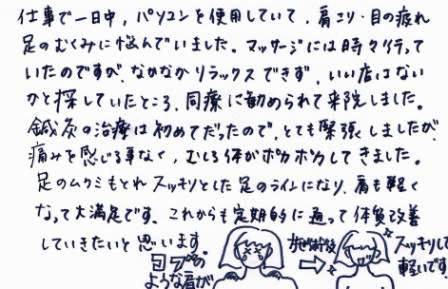 仕事で一日中、パソコンを使用していて、肩こり・目の疲れ
足のむくみに悩んでいました。マッサージには時々行って
いたのですが、なかなかリラックスできず、いい店はない
かと探していたところ、同療に勧められて来院しました。
鍼灸の治療は初めてだったので、とても緊張しましたが、
痛みを感じる事なく、むしろ体がポカポカしてきました。
足のムクミもとれスッキリとした足のラインになり、肩も軽く
なって大満足です。これからも定期的に通って体質改善
していきたいと思います
コブの
ような肩が
施術後
スッキリして
軽いです。